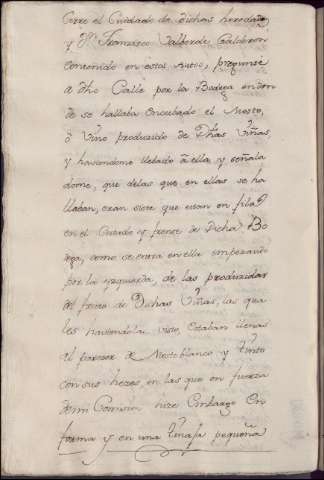 Corre el Cuidado de dichas heredades
y Dn. Francisco Valberde Calderon
contenido en estos Autos, pregunte
a dho Calle por la Bodega en don
de se hallaba Encubado el Mosto,
o Vino produzido de Dhas Viñas,
y haviendome llebado a ella, y señala
dome, que delas que en ellas se ha
llaban, eran siete que estan en fila
en el Costado y frente de Dicha Bo
dega, como se entra en ella empezando
por la yzquierda, de las produzidas
del fruto de Dichas Viñas, las qua
les haviendolas visto, Estaban llenas
al parezer de Mosto blanco y tinto
con sus hezes, en las que en fuerza
de mi Comision hize Embargo En
forma y en una tinaja pequeña